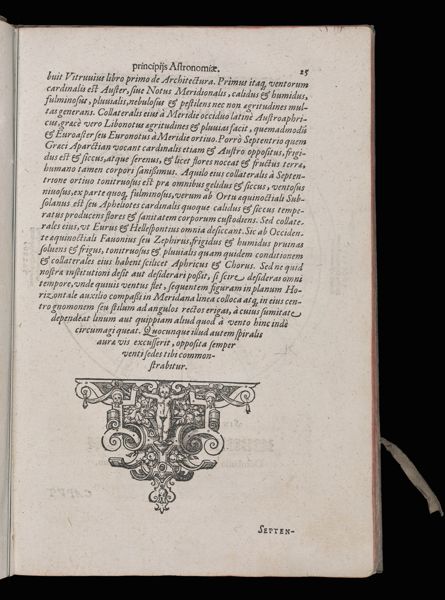 principijs Astronomiæ. 25
buit Vitruuius libro primo de Architectura. Primus itaq; ventorum
cardinalis est Auster, siue Notus Meridionalis, calidus & humidus,
fulminosus, pluuialis, nebulosus & pestilens nec non ægritudines mul-
tas generans. Collateralis eius à Meridie occiduo latinè Austroaphri-
cus, græcè vero Libonotus ægritudines & pluuias facit, quemadmodũ
& Euroaster seu Euronotus à Meridie ortiuo. Porrò Septentrio quem
Græci Aparctian vocant cardinalis etiam & Austro oppositus, frigi-
dus est & siccus, atque serenus, & licet flores noceat & fructus terræ,
humano tamen corpori sanissimus. Aquilo eius collateralis à Septen-
trione ortiuo tonitruosus est præ omnibus gelidus & siccus, ventosus
niuosus, ex parte quoq; fulminosus, verum ab Ortu æquinoctiali Sub-
solanus est seu Apheliotes cardinalis quoque calidus & siccus tempe-
ratus producens flores & sanitatem corporum custodiens. Sed collate-
rales eius, vt Eurus & Hellespontius omnia desiccant. Sic ab Occiden
te æquinoctiali Fauonius seu Zephirus, frigidus & humidus pruinas
soluens & frigus, tonitruosus & pluuialis quam quidem conditionem
& collaterales eius habent scilicet Aphricus & Chorus. Sed ne quid
nostræ institutioni desit aut desiderari possit, si scire desideras omni
tempore, vnde quiuis ventus flet, sequentem figuram in planum Ho-
rizontale auxilio compassi in Meridana linea colloca atq; in eius cen-
tro gnomonem seu stilum ad angulos rectos erigas, à cuius sumitate
dependeat linum aut quippiam aliud quod à vento hinc indè
circumagi queat. Quocunque illud autem spiralis
aura vis excusserit, opposita semper
venti sedes tibi common-
strabitur.
SEPTEN-